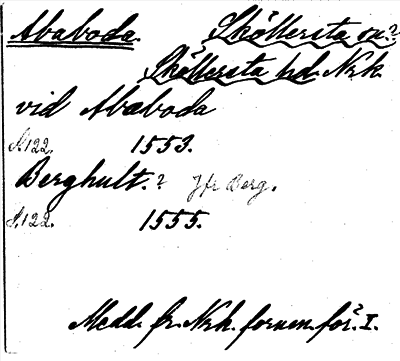 Åbaboda. Sköllersta sn?
Sköllersta hd. Nrk.
vid Ababoda
S.122. 1553.
Berghult.? Jfr Berg.
S.122. 1555.
Medd. fr. Nrk. fornm.för. I.